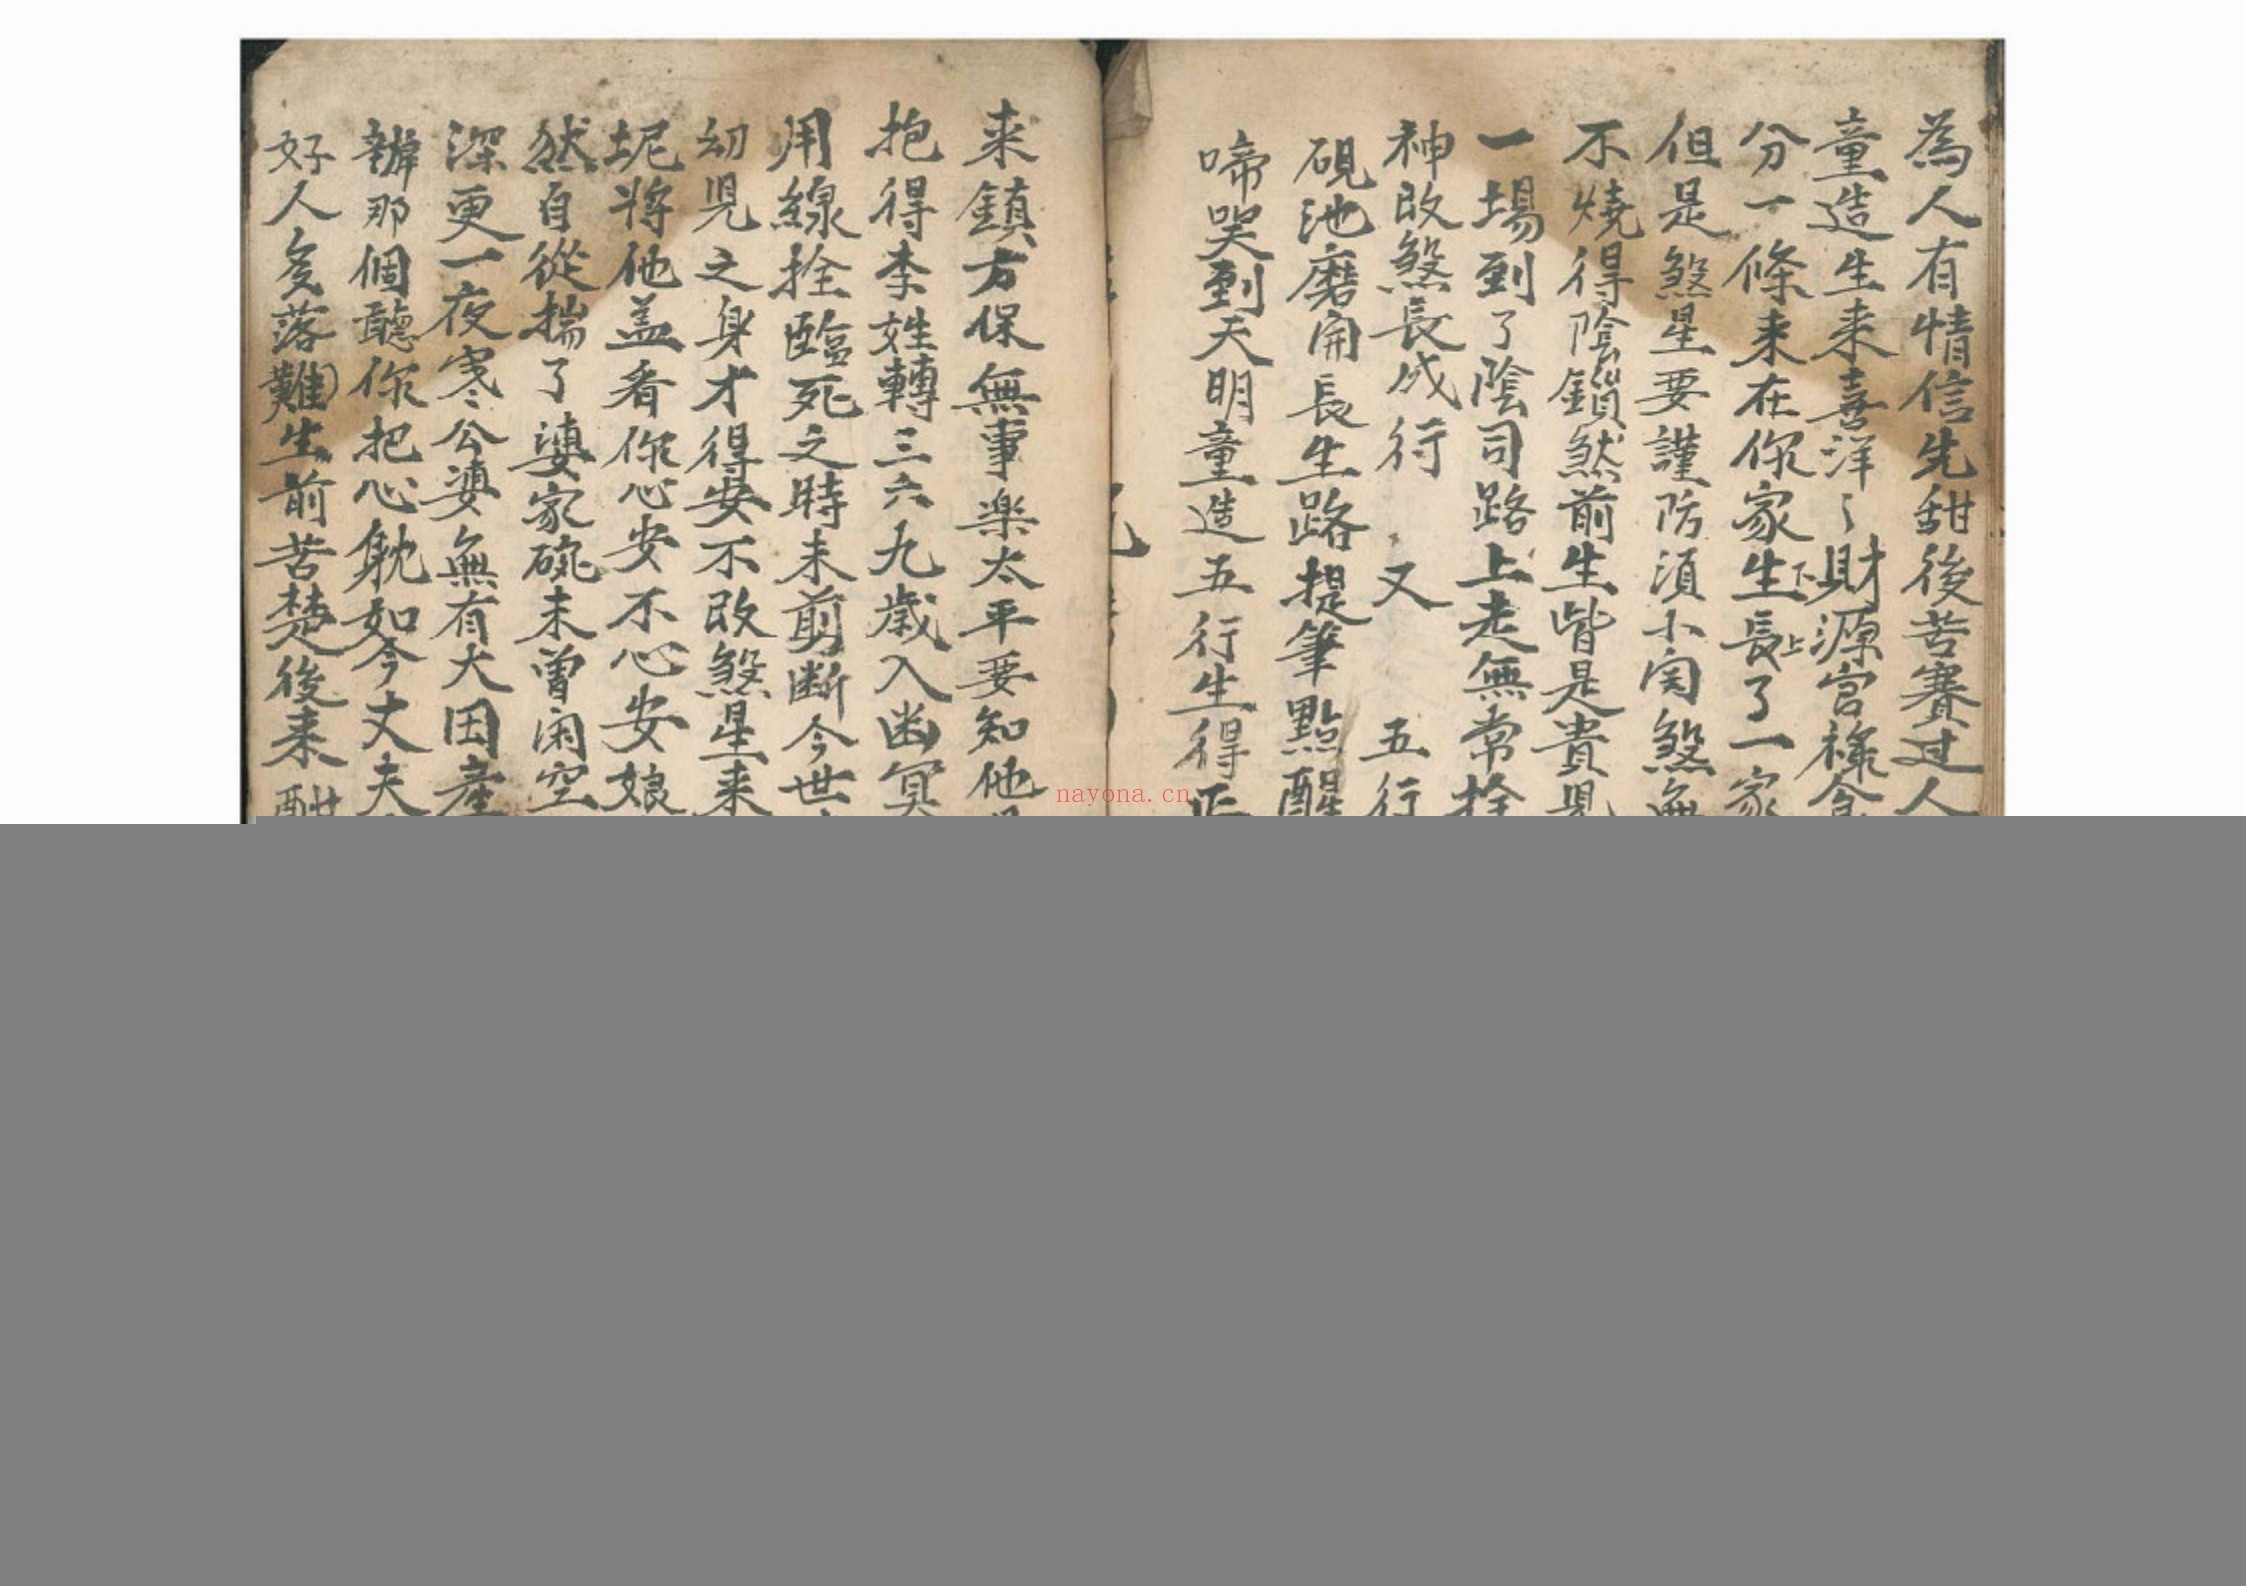 為人有情信先甜後苦賽过人
童造生来喜洋〻財源官禄
分一條来在你家生下長上了一家
但是煞星要謹防須小関煞
不燒得陰鎖煞前生皆是貴
一場到了陰司路上走無常拴
神改煞長成行 又 五行
硯池磨開長生路提筆點醒
啼哭到天明童造五行生得
来鎮方保無事楽太平要知他
抱得李姓轉三六九歲入幽冥
用線拴臨死之時未剪断今世
幼児之身才得安不改煞星来
坭將他盖看你心安不心安娘
然自從揣了婆家碗未曾闲空
深更一夜寒〻公婆無有大田產
辦那個聽你把心躭如今丈夫
好人多落難生前苦楚後来
nayona.cn